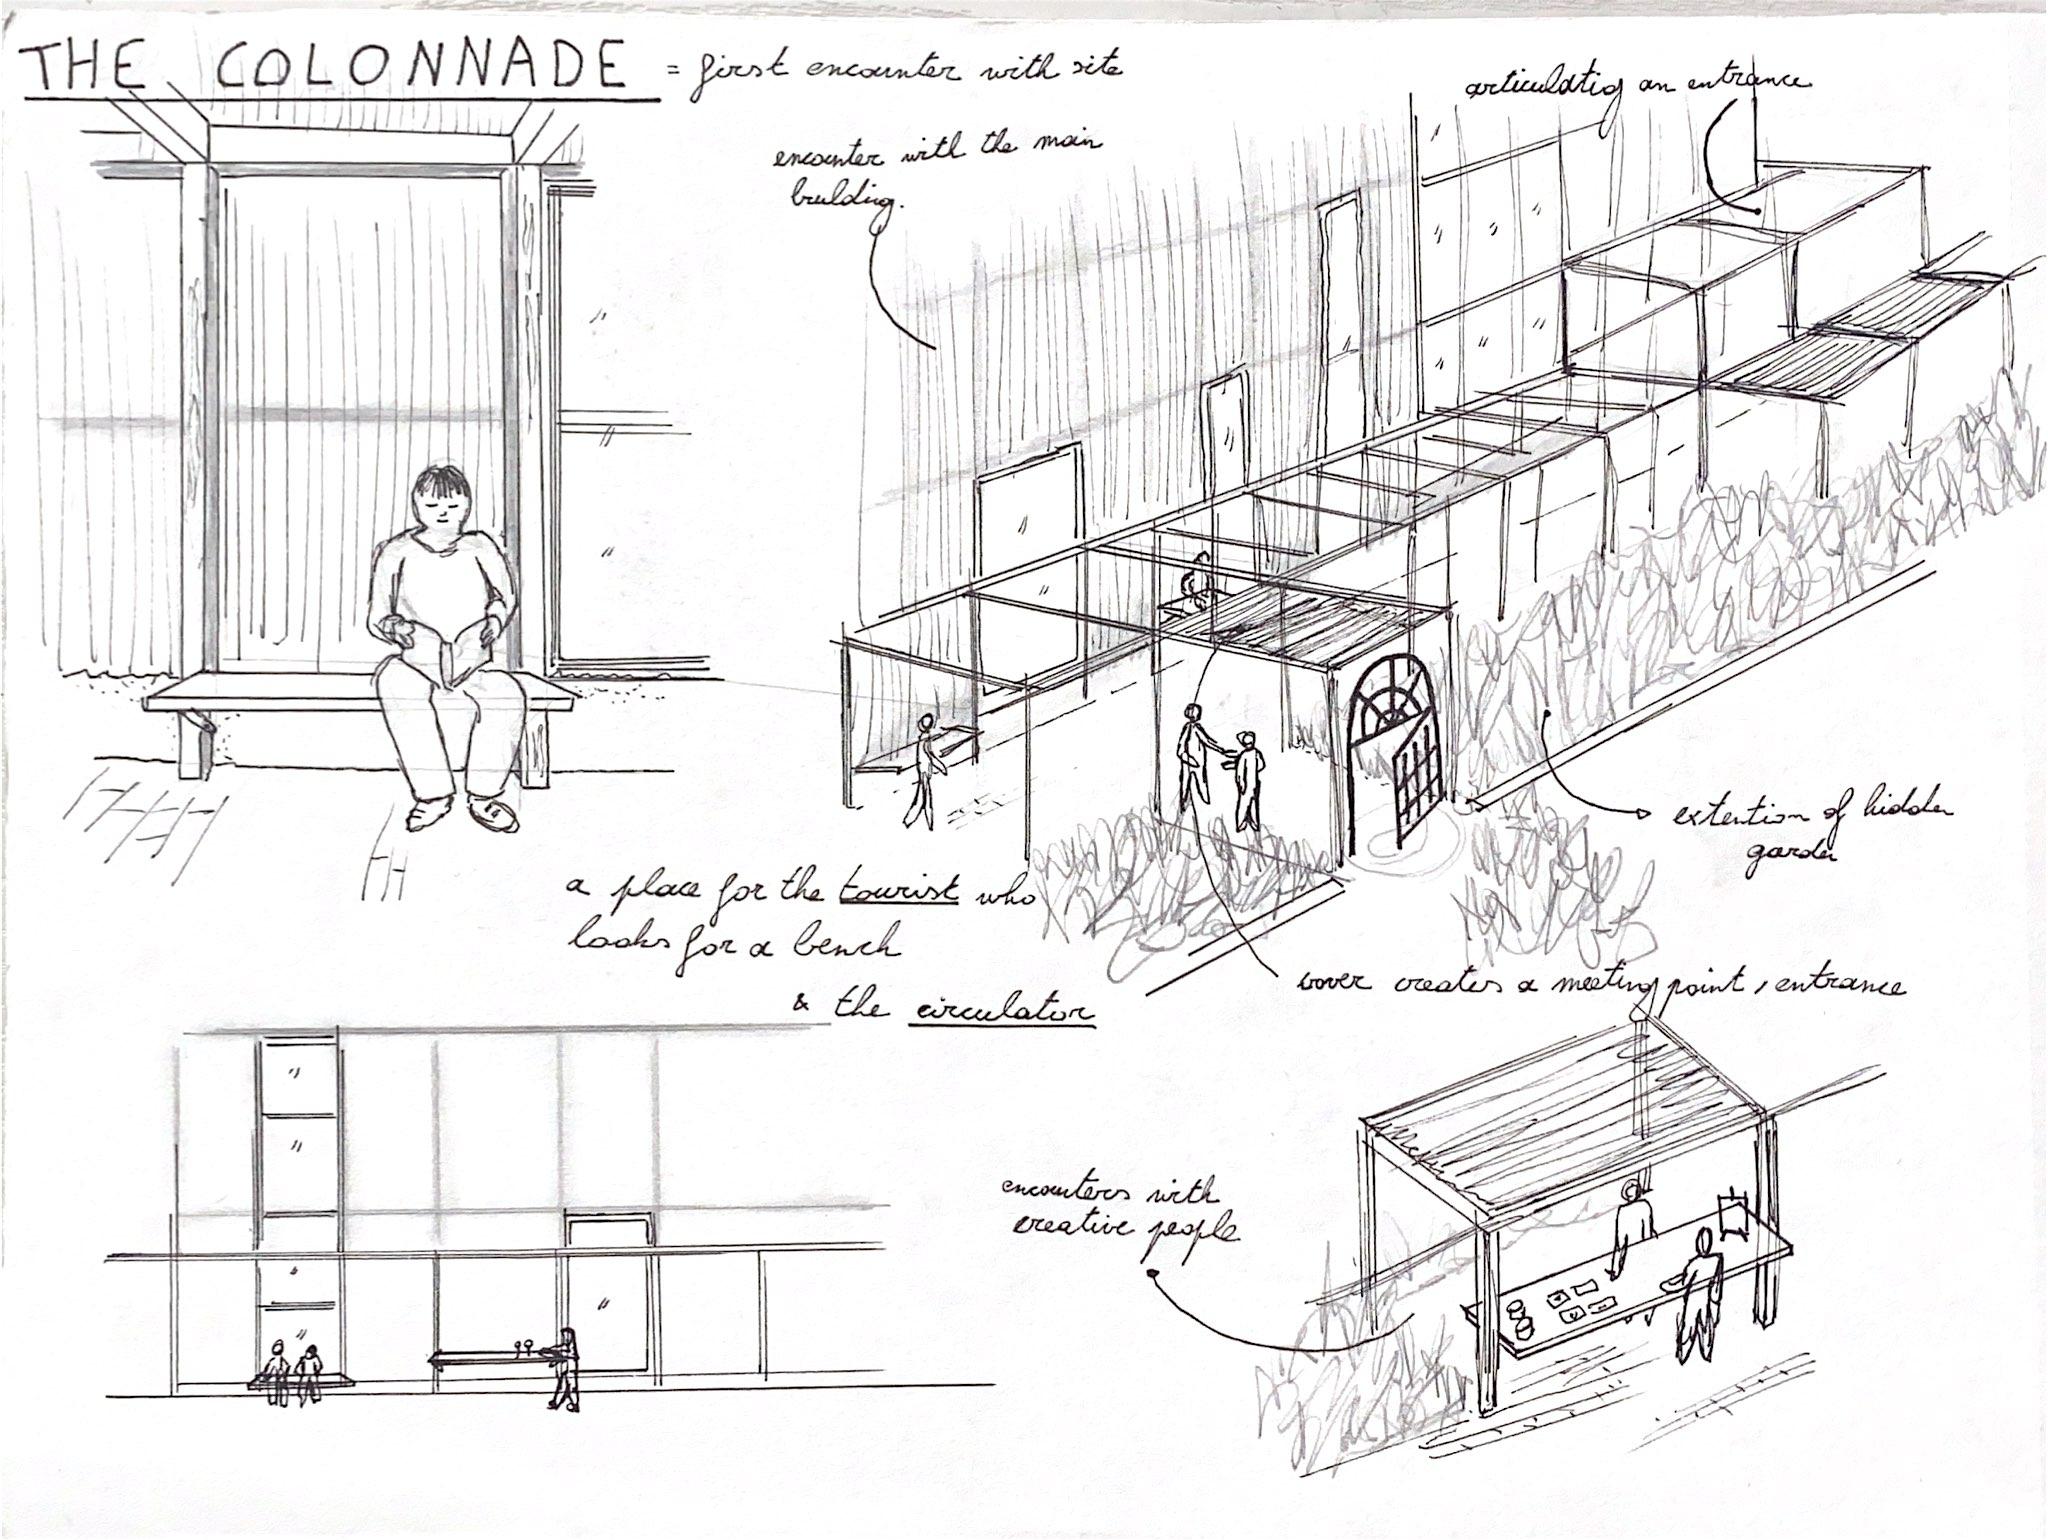 THE COLONNADE = first encounter with site
articulatig an entrance
encounter with the main
building.
extention of hidden
garden
a place for the tourist who
looks for a bench
& the circulator
cover creates a meeting point, entrance
encounters with
creative people